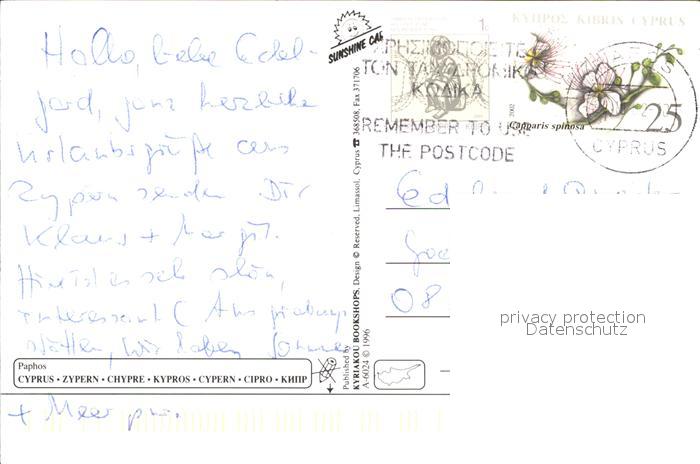 Hallo, liebe Edel-
gard, ganz herzliche
Urlaubsgrüße aus
Zypern senden Dir
Klaus + Margit.
Hier ist es sehr schön,
interessant (Ausgrabungs
stätten), wir haben Sonne
+ Meer pur.
Paphos
CYPRUS • ZYPERN • CHYPRE • KYPROS • CYPERN • CIPRO • КИПР
SUNSHINE CAR
Published by
KYRIAKOU BOOKSHOPS. Design © Reserved, Limassol, Cyprus ☎ 368508, Fax 371706
A-6024 © 1996
1c
ΚΥΠΡΟΣ KIBRIS CYPRUS
ΤΟΝ ΤΑΧΥΔΡΟΜΙΚΟ
ΚΩΔΙΚΑ
REMEMBER TO USE
THE POSTCODE
2002
Capparis spinosa
25
CYPRUS
08
privacy protection
Datenschutz